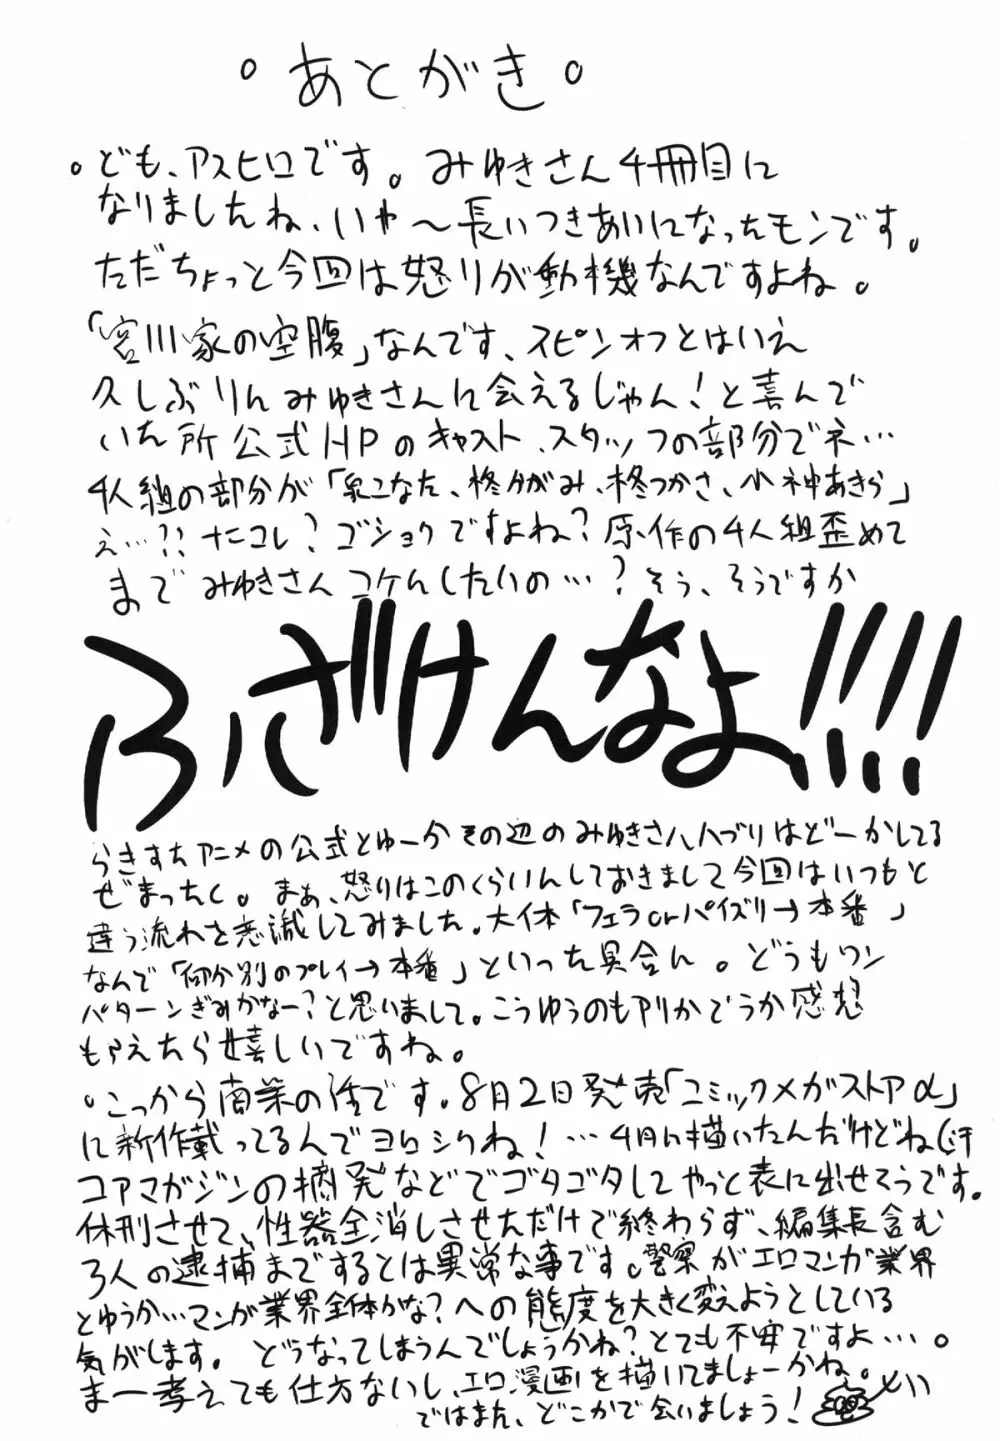 。あとがき。
。ども、アスヒロです。みゆきさん4冊目に
なりましたね、いや〜長いつきあいになったモンです。
ただちょっと今回は怒りが動機なんですよね。
「宮川家の空腹」なんです、スピンオフとはいえ
久しぶりんみゆきさんに会えるじゃん!と喜んで
いた所公式HPのキャスト、スタッフの部分でネ…
4人組の部分が「泉こなた、柊かがみ、柊つかさ、小神あきら」
え…?? ナニコレ?ゴショクですよね?原作の4人組歪めて
までみゆきさんコケんしたいの…?そう、そうですか
ふざけんなよ!!!!
らきすたアニメの公式とゆーかその辺のみゆきさんハブリはどーかしてる
ぜまったく。まぁ、怒りはこのくらいんしておきまして今回はいつもと
違う流れを意識してみました。大体「フェラorパイズリ→本番」
なんで「何か別のプレイ→本番」といった具合ん。どうもワン
パターンぎみかなー?と思いまして。こうゆうのもアリかどうか感想
もらえたら嬉しいですね。
・こっから商業の話です。8月2日発売「コミックメガストアα」
に新作載ってるんでヨロシクね!…4月に描いたんだけどね(汗
コアマガジンの摘発などでゴタゴタしてやっと表に出せそうです。
休刊させて、性器全消しさせただけで終わらず、編集長含む
3人の逮捕までするとは異常な事です。警察がエロマンガ業界
とゆうか…マンガ業界全体かな?への態度を大きく変えようとしている
気がします。どうなってしまうんでしょうかね?とても不安ですよ…。
まー考えても仕方ないし、エロ漫画を描いてましょーかね。
ではまた、どこかで会いましょう!